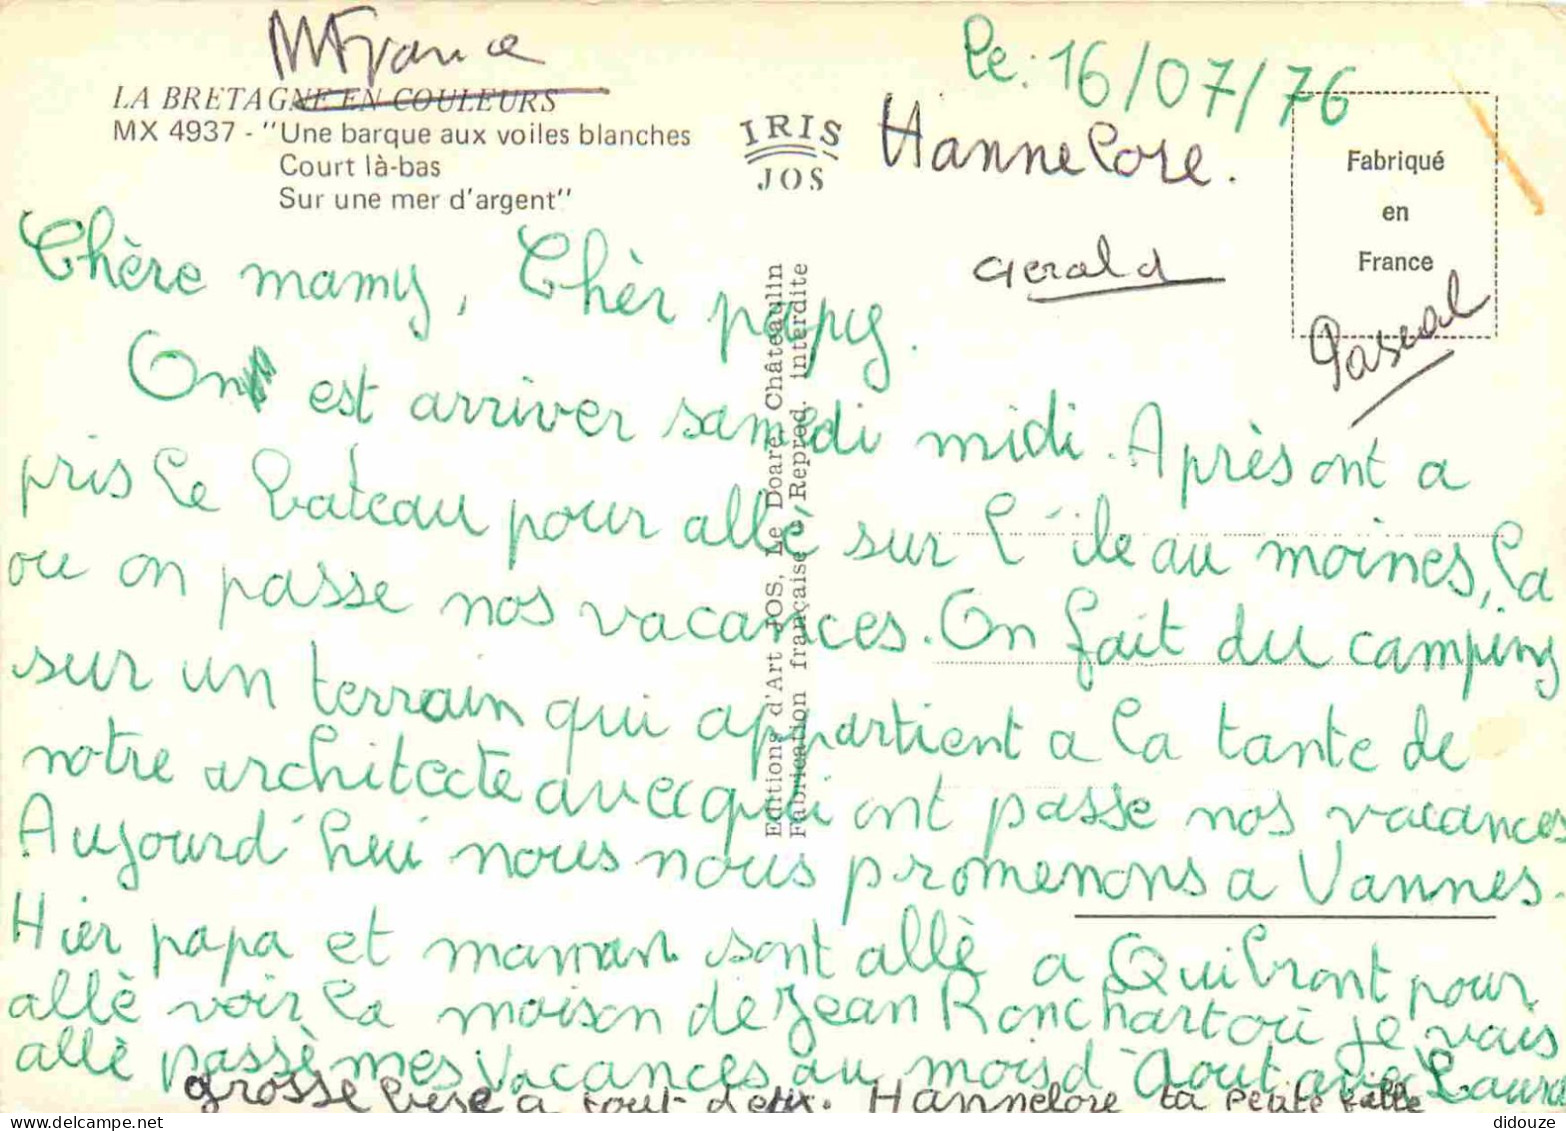 MFrance
Le: 16/07/76
LA BRETAGNE EN COULEURS
MX 4937 - "Une barque aux voiles blanches
Court là-bas
Sur une mer d'argent"
IRIS
JOS
Hannelore.
Gerald
Pascal
Fabriqué
en
France
Editions d'Art JOS, Le Doaré, Châteaulin
Fabrication française, Reprod. interdite
Chère mamy, Chèr papy.
On est arriver samedi midi. Après ont a
pris le bateau pour allè sur l'île au moines, la
ou on passe nos vacances. On fait du camping
sur un terrain qui appartient a la tante de
notre architecte avec qui ont passe nos vacances
Aujourd'hui nous nous promenons a Vannes.
Hier papa et maman sont allè a Quibront pour
allè voir la maison de Jean Ronchart où je vais
allè passè mes vacances au mois d'Aout avec Laura
grosse bise a tout deux. Hannelore ta petite fille
didouze